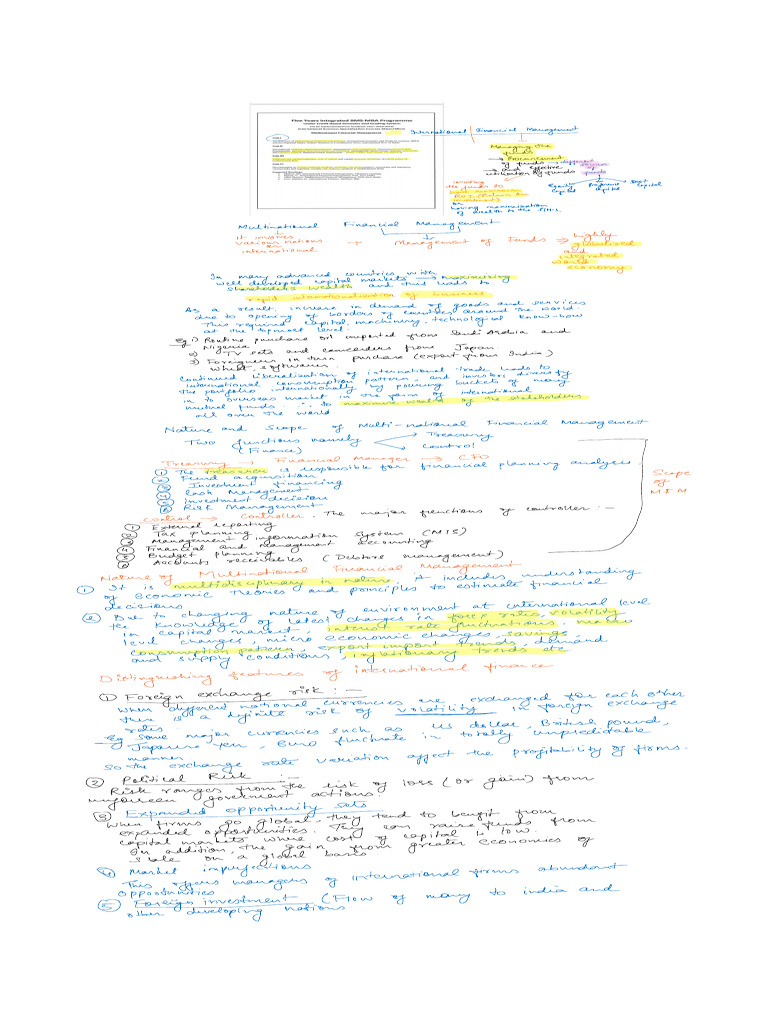 Five Years Integrated BMS-MBA Programme
Multinational Financial Management
International Financial Management
Managing the
funds
→ Procurement
of funds → different
→ and effective
utilisation of funds
Equity Preference Debt
capital capital capital
investing
the funds to
ROI (Return on
investment)
or
having maximisation
of wealth to the
Multinational Financial Management
It involves
various nations + Management of Funds ⇒ highly
or globalised
international and
integrated
world
economy
In many advanced countries with
well developed capital markets → maximising
shareholders wealth and this leads to
rapid internationalization of business
As a result, increase in demand of goods and services
due to opening of borders of countries around the world.
This required capital, machinery, technological know-how
at the topmost level.
eg 1) Routine purchase oil imported from Saudi Arabia and
Nigeria
2) TV sets and camcorders from Japan
3) Foreigners in turn purchase (export from India)
wheat, softwares.
Continued liberalization of international trade leads to
international consumption pattern, and investors diversify
the portfolio internationally by pouring buckets of money
in to overseas market in the form of international
mutual funds to maximise wealth of the stakeholders
all over the world
Nature and Scope of Multi-national Financial Management
Two functions namely Treasury
(Finance) Control
Treasury → Financial Manager → CFO
① The treasurer is responsible for financial planning analysis
② Fund acquisition
③ Investment financing
④ Cash Management
⑤ Investment decision
⑥ Risk Management
Scope
of
MFM
Control → Controller. The major functions of controller :-
① External reporting
② Tax planning
③ Management information system (MIS)
④ Financial and Management accounting
⑤ Budget planning
⑥ Accounts receivables (Debtors management)
Nature of Multinational Financial Management
① It is multidisciplinary in nature, it includes understanding
of economic theories and principles to estimate financial
decisions
② Due to changing nature of environment at international level
the knowledge of latest changes in forex rates, volatility
in capital market, interest rate fluctuations, macro
level changes, micro economic changes, savings,
consumption pattern, export import trends, demand
and supply conditions, inflationary trends etc
Distinguishing features of international finance
① Foreign exchange risk :-
When different national currencies are exchanged for each other
there is a definite risk of volatility in foreign exchange
rates
eg Some major currencies such as US dollar, British pound,
Japanese yen, Euro fluctuate in totally unpredictable
manner
So the exchange rate variation affect the profitability of firms.
② Political Risk :-
Risk ranges from the risk of loss (or gain) from
unforeseen government actions
③ Expanded opportunity sets
When firms go global, they tend to benefit from
expanded opportunities. They can raise funds from
capital markets where cost of capital is low.
In addition, the gain from greater economies of
scale on a global basis
④ Market imperfections
This offers managers of international firms abundant
opportunities
⑤ Foreign investment (Flow of money to india and
other developing nations